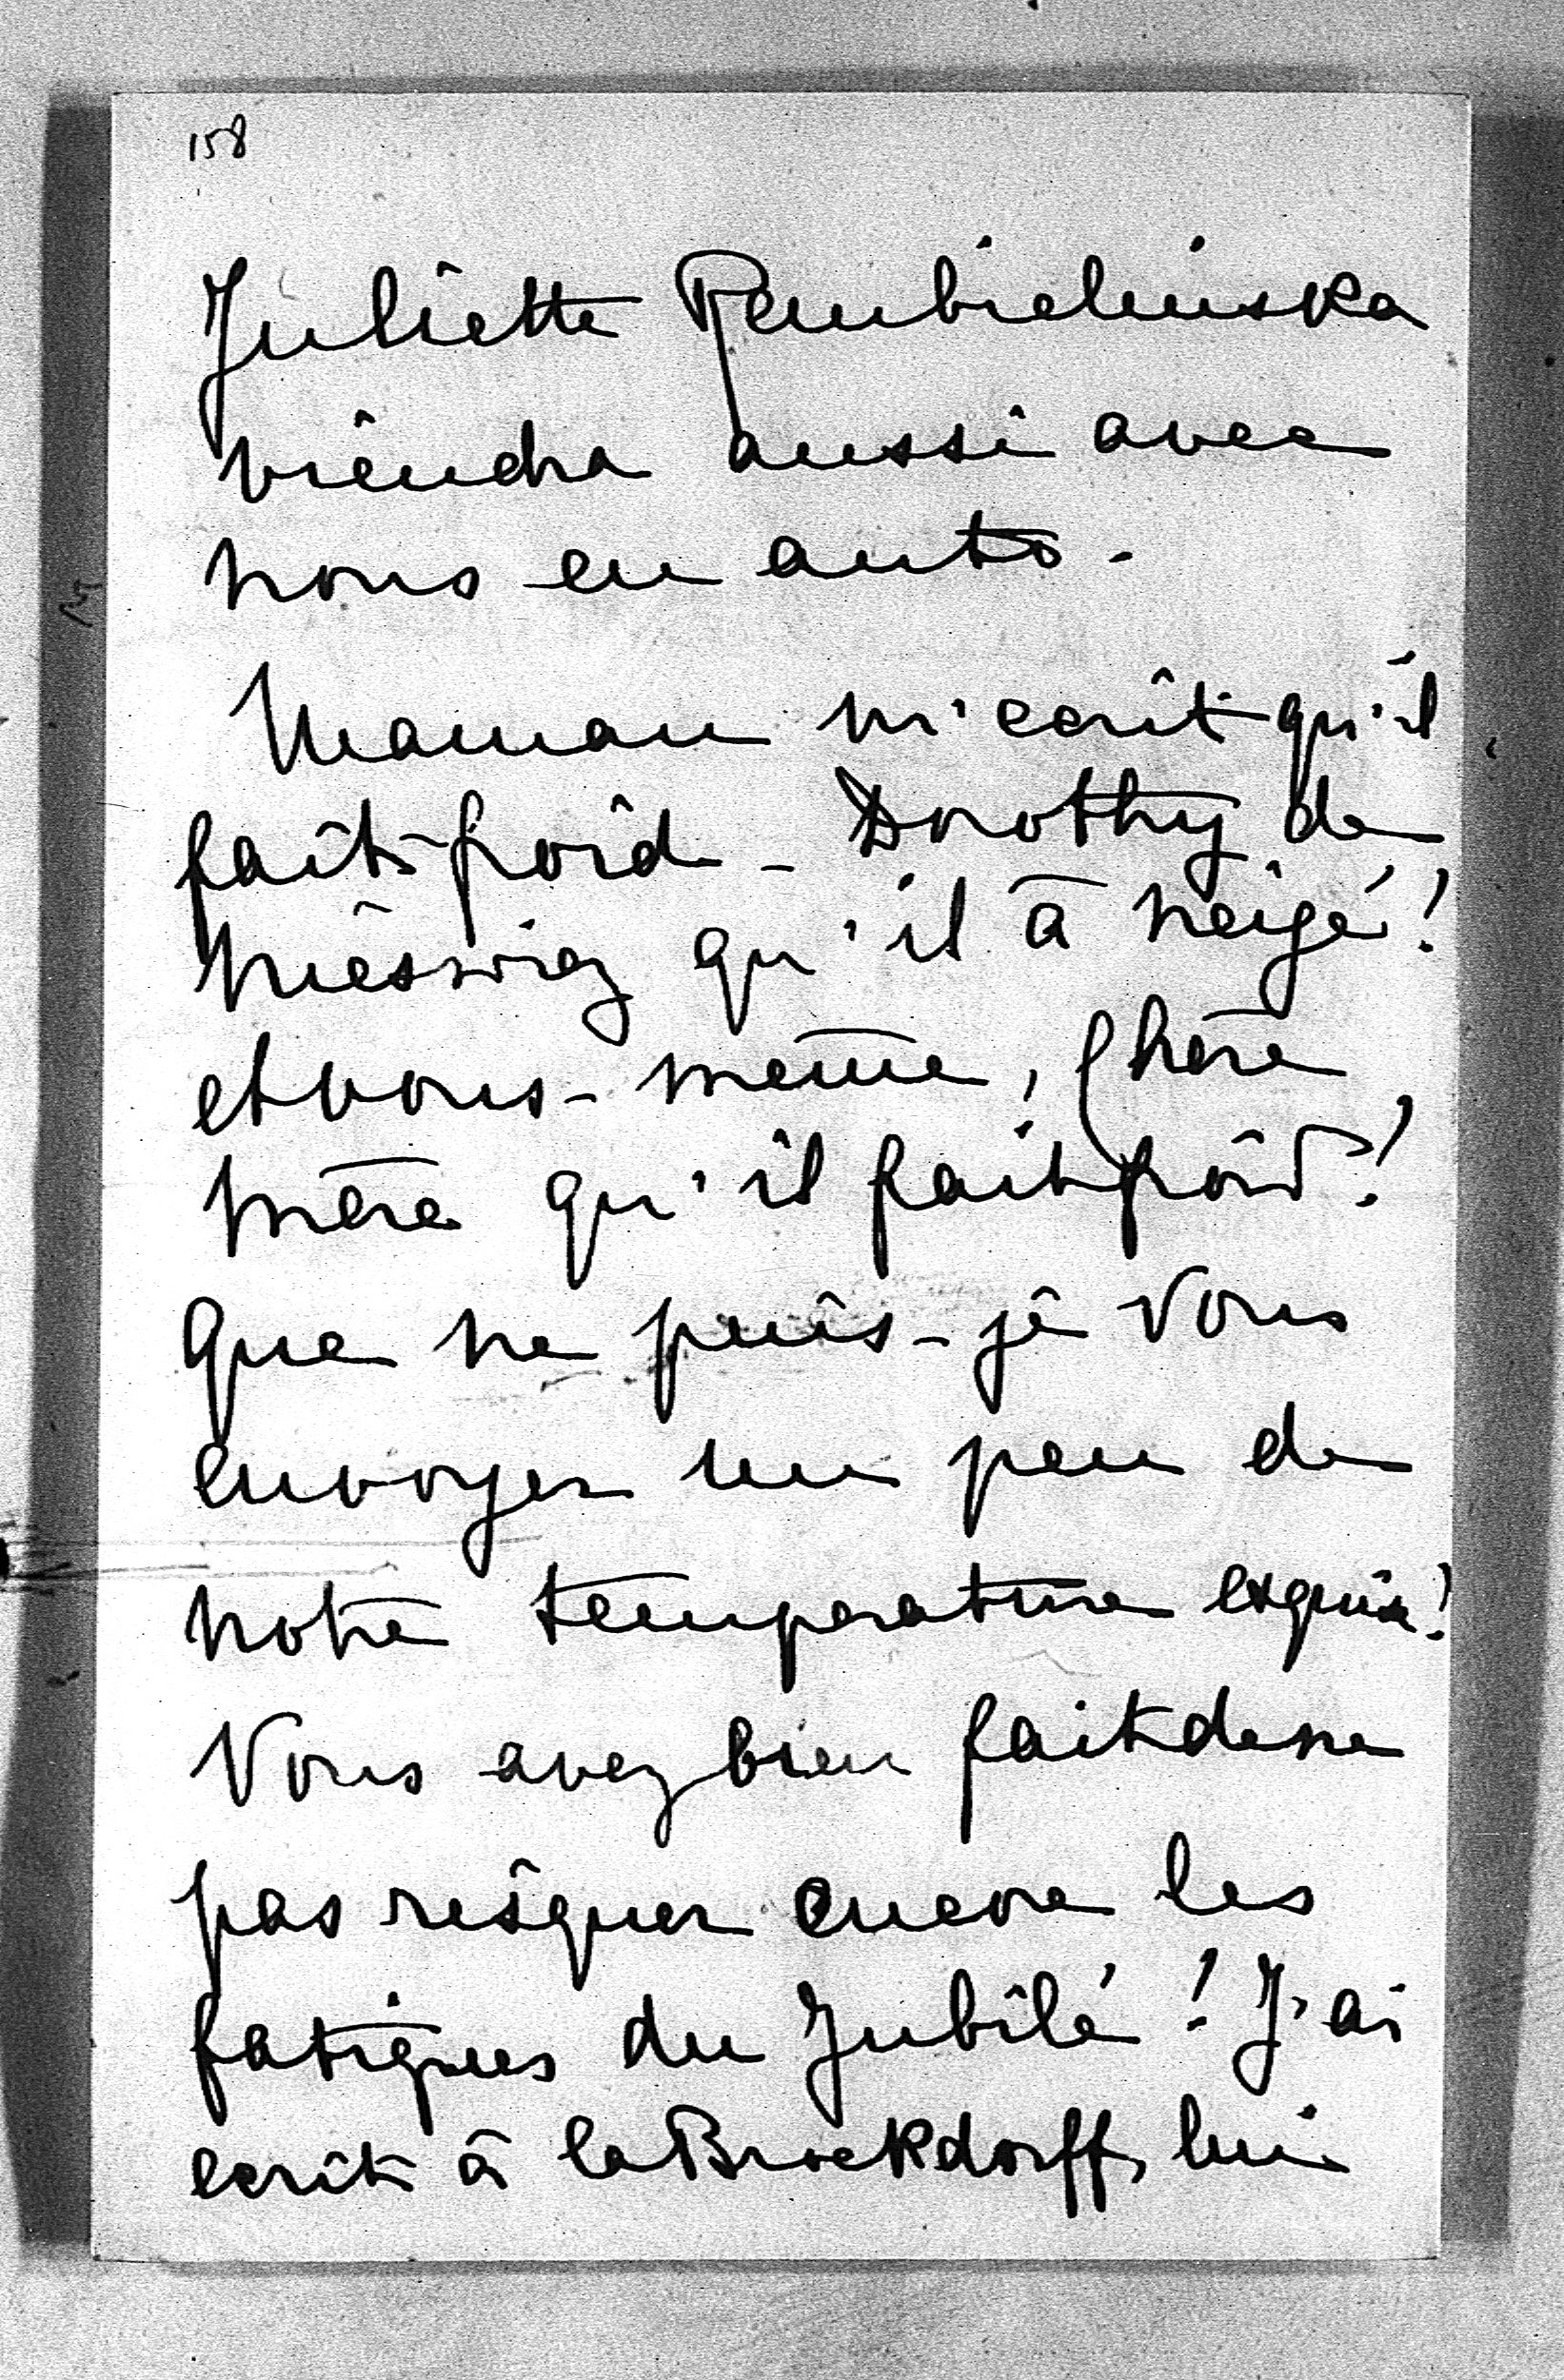 158
Juliette Rembielinska
viendra aussi avec
nous en auto -
Maman m'ecrit qu'il
fait froid - Dorothy de
Nieswiez qu'il à neigé!
et vous-même, Chère
Mère qu'il fait froid!
Que ne puis-je vous
envoyer un peu de
notre temperature exquise!
Vous avez bien fait de ne
pas risquer encore les
fatigues du Jubilé! J'ai
ecrit à la Brockdorff, lui